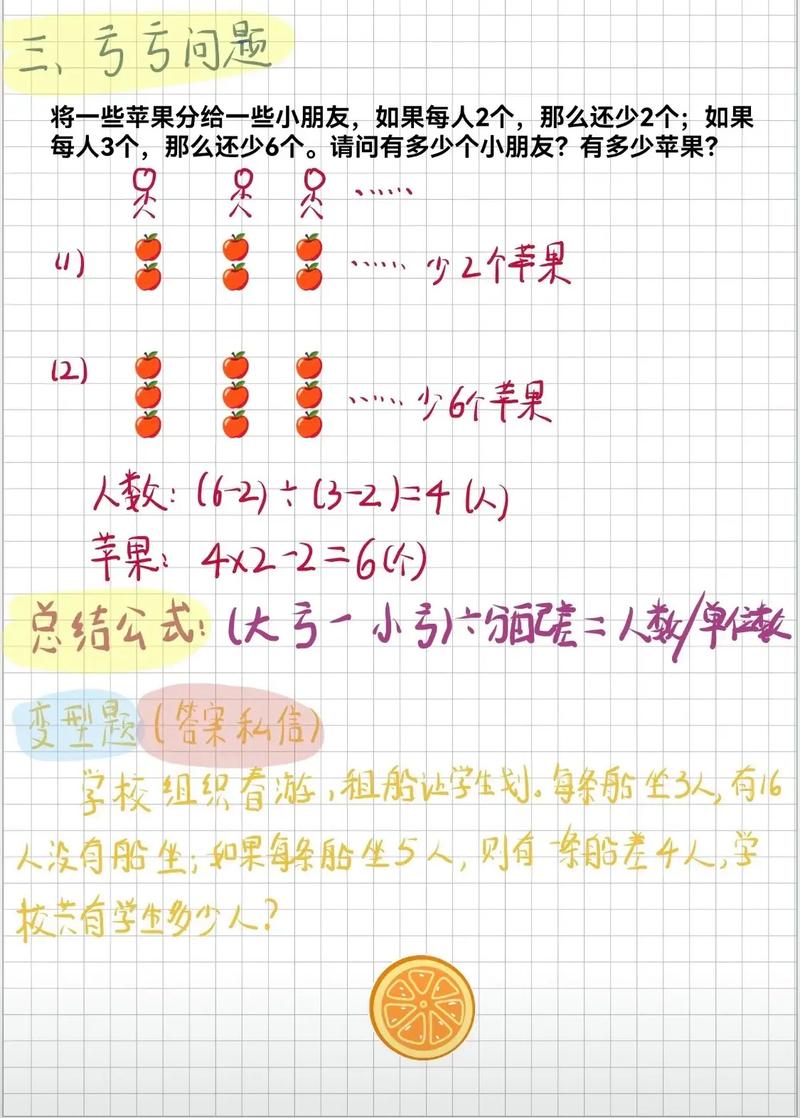 三、亏亏问题
将一些苹果分给一些小朋友，如果每人2个，那么还少2个；如果
每人3个，那么还少6个。请问有多少个小朋友？有多少苹果？
······
(1) ······ 少2个苹果
(2) ······ 少6个苹果
人数：(6-2)÷(3-2)=4(人)
苹果：4×2-2=6(个)
总结公式：(大亏-小亏)÷分配差=人数/单位数
变型题(答案私信)
学校组织春游，租船让学生划。每条船坐3人，有16
人没有船坐；如果每条船坐5人，则有一条船差4人，学
校共有学生多少人？